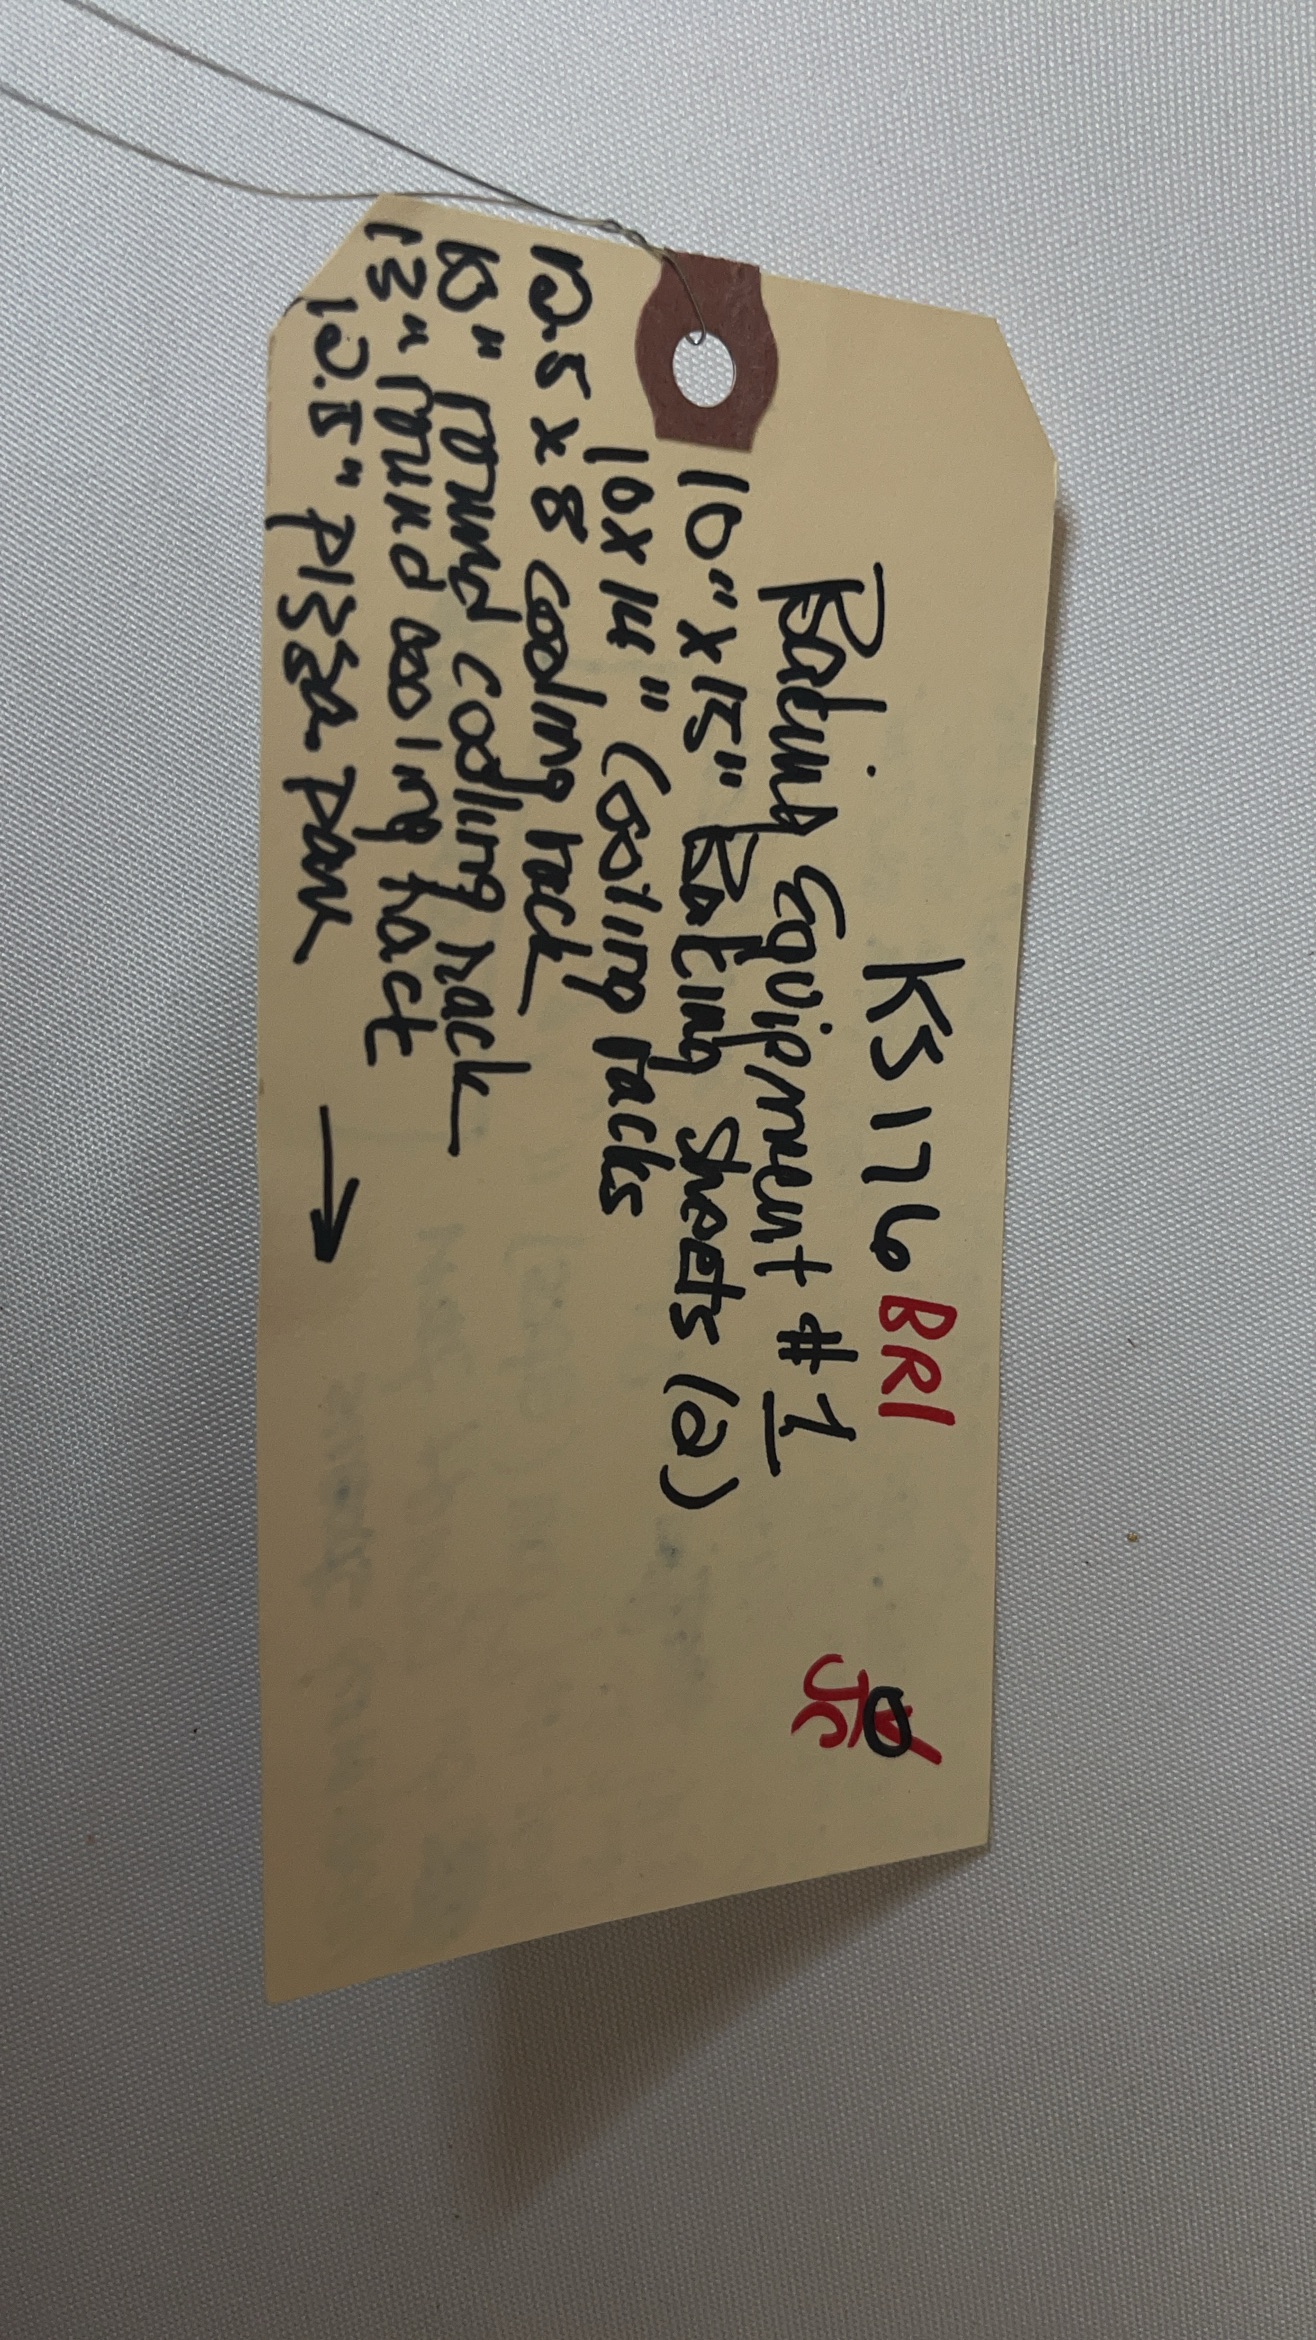 KS176 BR1
Baking Equipment #1
JC
10" x 15" Baking Sheets (2)
10 x 14" Cooling racks
12.5 x 8 cooling rack
10" round cooling rack
13" round cooling rack
12.5" pizza pan →